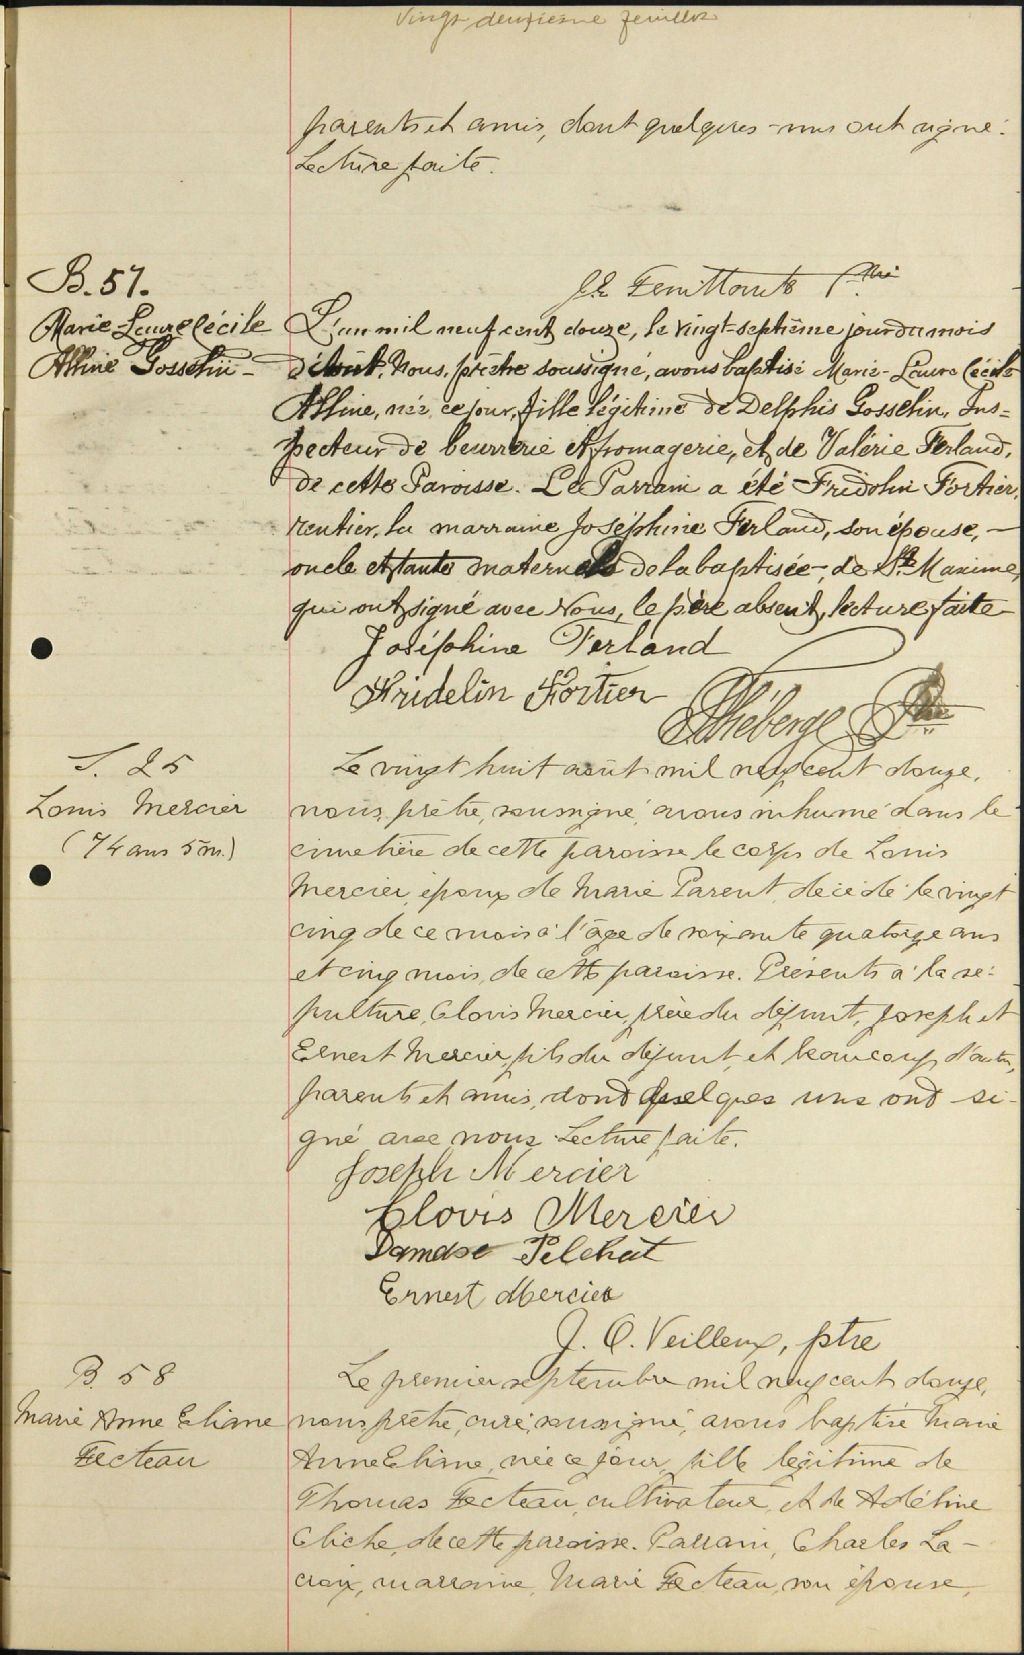 Vingt deuxième feuillet
parents et amis, dont quelques-uns ont signé.
Lecture faite.
Ptre
B. 57.
Marie-Laure Cécile
Alline Gosselin-
L'an mil neuf cent douze, le vingt-septième jour du mois
d'Août, Nous, prêtre soussigné, avons baptisé Marie-Laure Cécile
Alline, née, ce jour, fille légitime de Delphis Gosselin, Ins-
pecteur de beurrerie et fromagerie, et de Valérie Ferland,
de cette Paroisse. Le Parrain a été Fridolin Fortier,
rentier, la marraine Joséphine Ferland, son épouse, -
oncle et tante maternels de la baptisée, de Ste Maxime,
qui ont signé avec Nous, le père absent, lecture faite-
Joséphine Ferland
Fridelin Fortier
Théberge Ptre
S. 25
Louis Mercier
(74 ans 5 m.)
Le vingt huit août mil neuf cent douze,
nous, prêtre, soussigné, avons inhumé dans le
cimetière de cette paroisse le corps de Louis
Mercier, époux de Marie Parent, décédé le vingt
cinq de ce mois à l'âge de soixante quatorze ans
et cinq mois, de cette paroisse. Présents à la sé-
pulture, Clovis Mercier, frère du défunt, Joseph et
Ernest Mercier, fils du défunt, et beaucoup d'autres,
parents et amis, dont quelques uns ont si-
gné avec nous. Lecture faite.
Joseph Mercier
Clovis Mercier
Damase Pelchat
Ernest Mercier
J. O. Veilleux, ptre
B. 58
Marie Anne Eliane
Fecteau
Le premier septembre mil neuf cent douze,
nous, prêtre, curé, soussigné, avons baptisé Marie
Anne Eliane, née ce jour, fille légitime de
Thomas Fecteau, cultivateur, et de Adéline
Cliche, de cette paroisse. Parrain, Charles La-
croix, marraine, Marie Fecteau, son épouse,